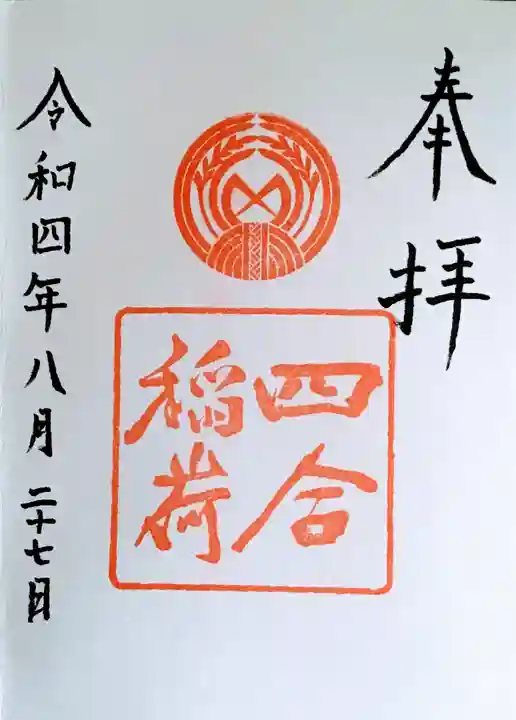 奉拝
四合
稲荷
令和四年八月二十七日